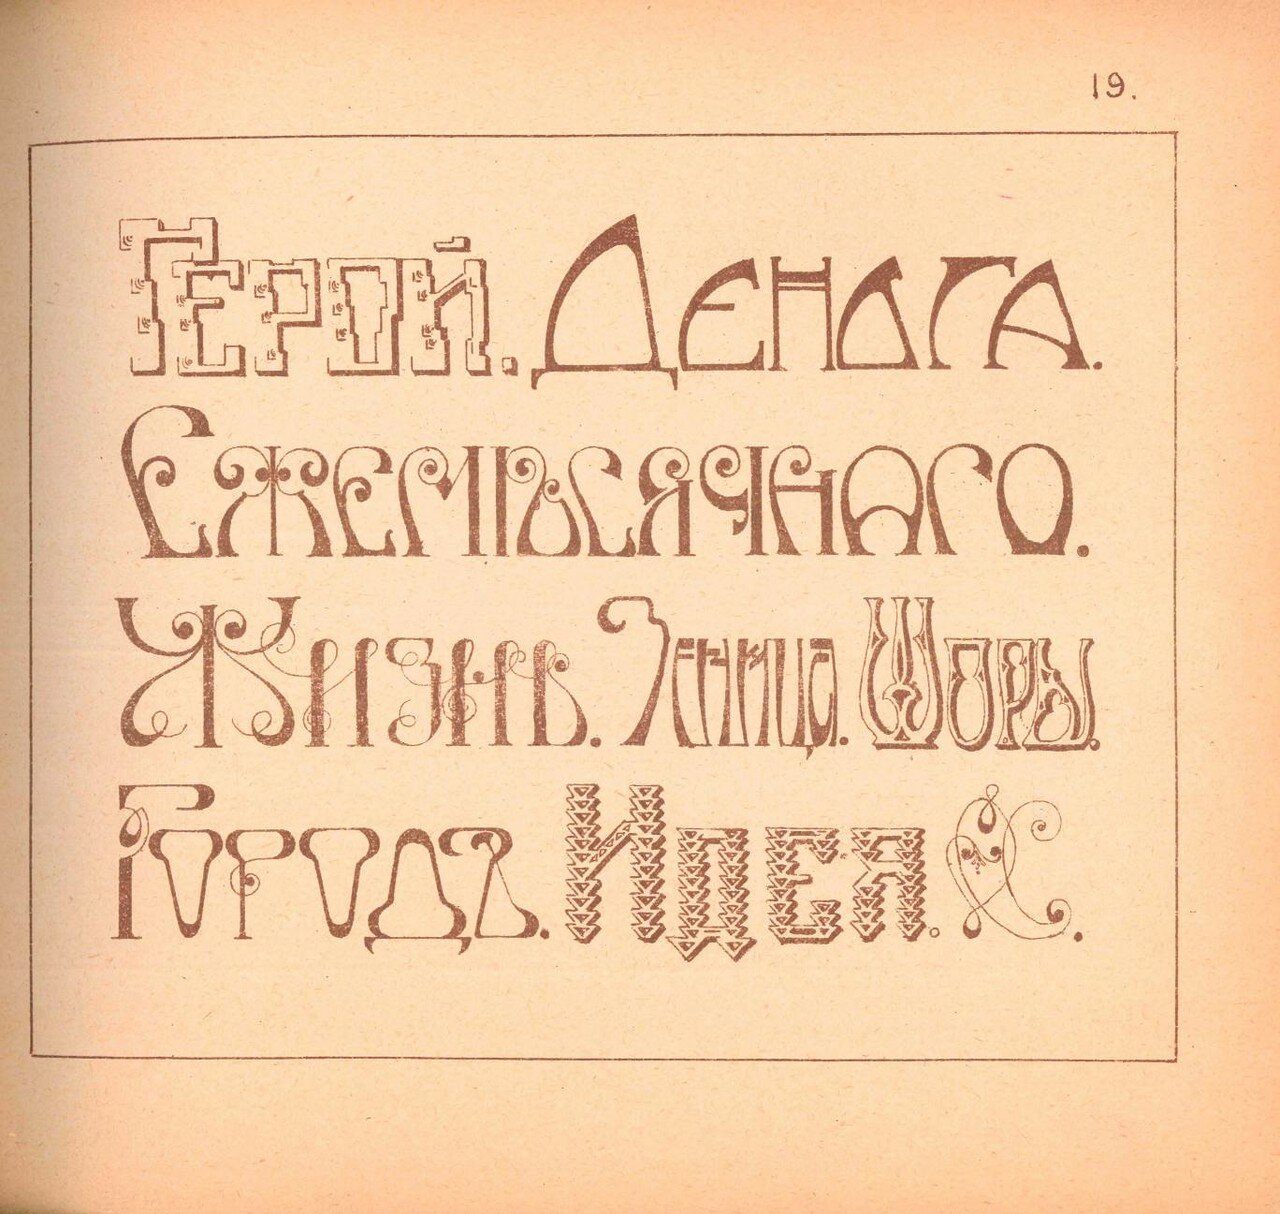 19.
Герой. Деньга.
Ежемѣсячнаго.
Жизнь. Зеница. Шоры.
Городъ. Идея.